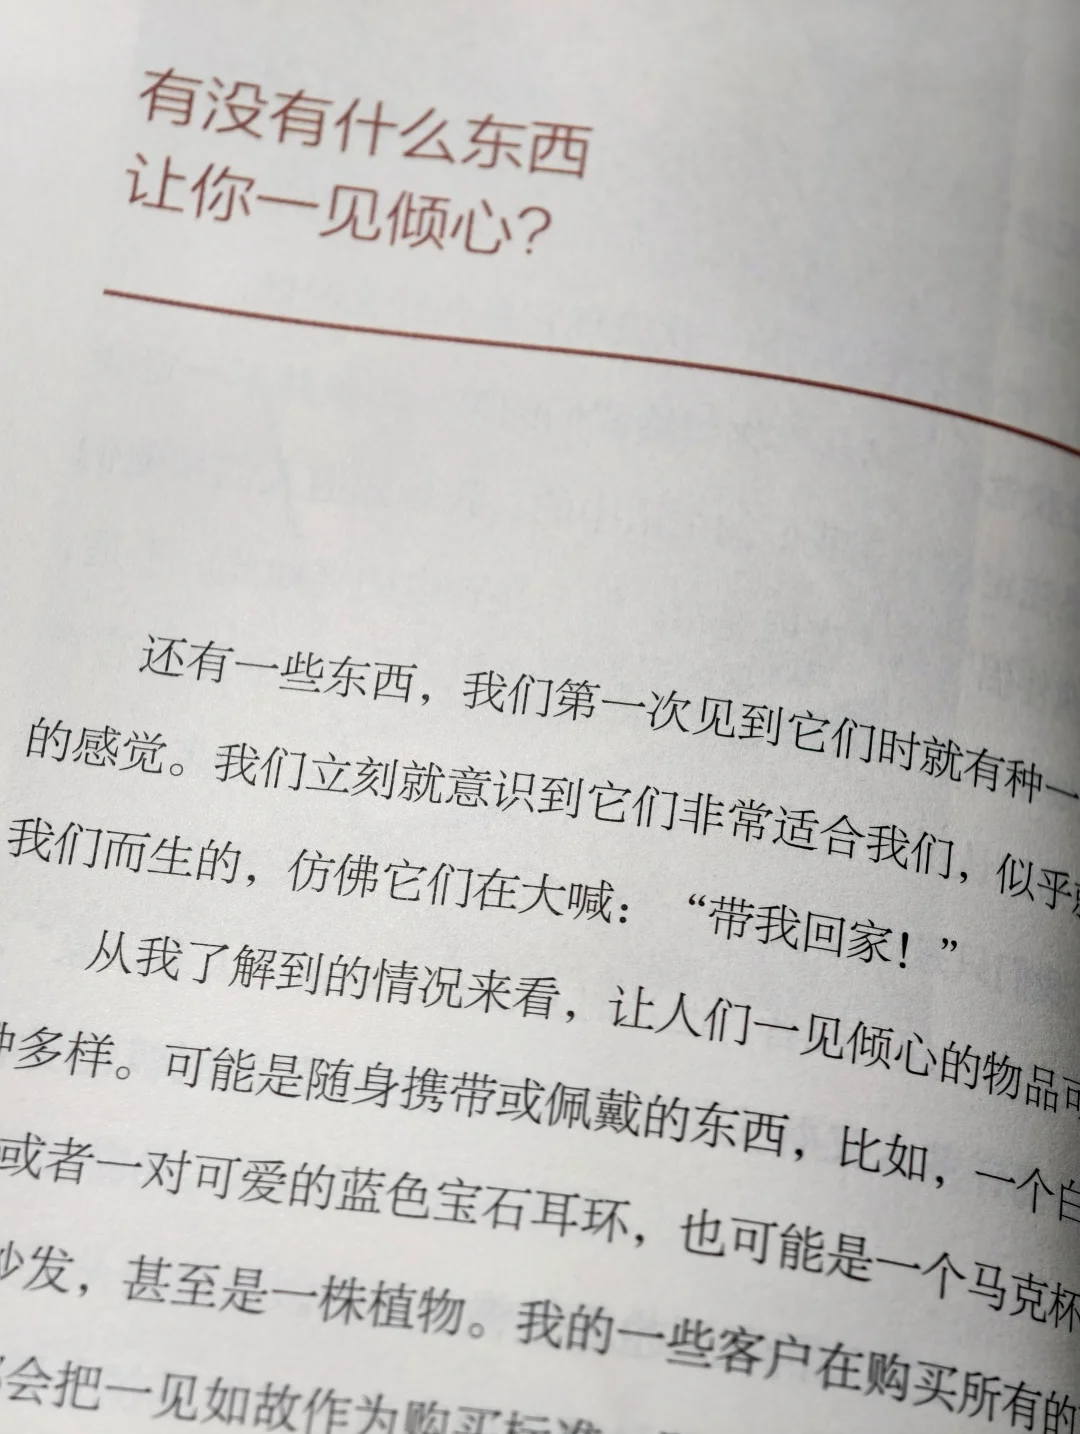 有没有什么东西
让你一见倾心？
还有一些东西，我们第一次见到它们时就有种一
的感觉。我们立刻就意识到它们非常适合我们，似乎
我们而生的，仿佛它们在大喊：“带我回家！”
从我了解到的情况来看，让人们一见倾心的物品可
种多样。可能是随身携带或佩戴的东西，比如，一个白
或者一对可爱的蓝色宝石耳环，也可能是一个马克杯
沙发，甚至是一株植物。我的一些客户在购买所有的
会把一见如故作为购买标准